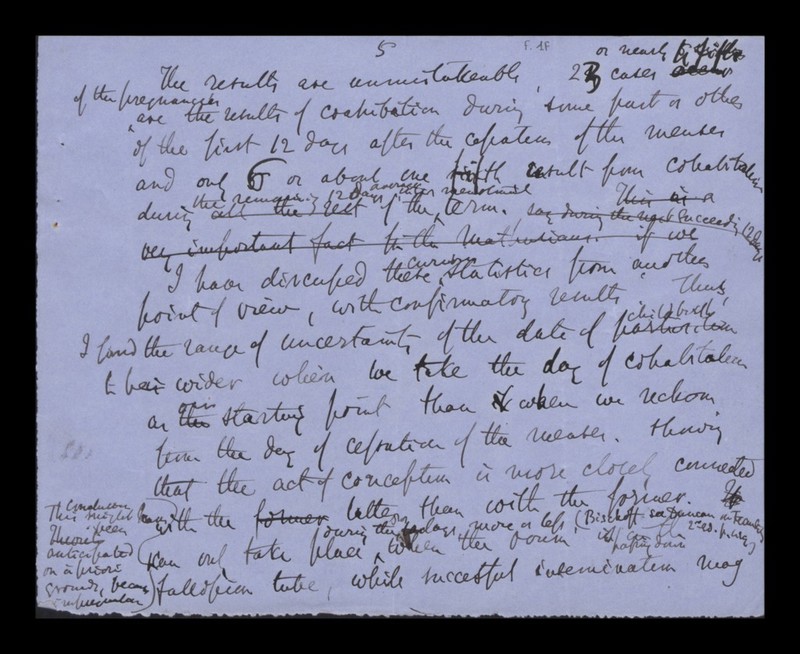 5
F. 1F
or nearly
The results are unmistakeable, 23 cases
of the pregnancies
are the results of cohabitation during some part or other
of the first 12 days after the cessation of the menses
and only 6 or about one result from cohabitation
the remaining 12 days
during all the rest of the term. say during the next succeeding 12 days
This is a
very important fact for the Malthusians. if we
curious
I have discussed these statistics from another
point of view, with confirmatory results. Thus,
childbirth
I find the range of uncertainty of the date of parturition
to be wider when we take the day of cohabitation
our
as the starting point than when we reckon
from the day of cessation of the menses. Showing
that the act of conception is more closely connected
with the former latter than with the former.
This might have been
anticipated
on à priori
grounds, because
impregnation
during the days more or less, (Bischoff see Duncan on Fecundity 2nd ed.
can only take place when the ovum is
passing down
Fallopian tube, while successful insemination may